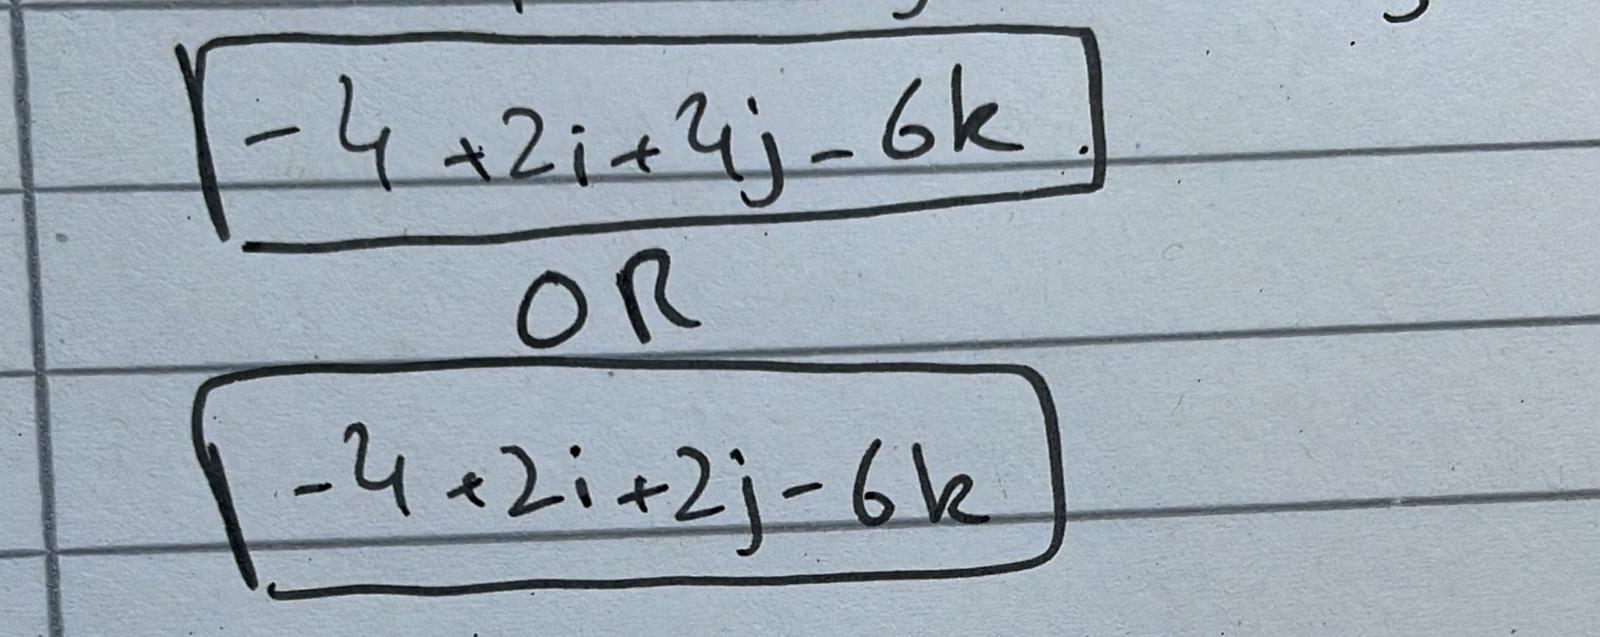 -4 +2i+4j-6k.
OR
-4+2i+2j-6k